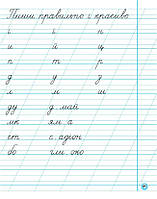 Пиши правильно і красиво
і ї н
и й ц
п т р
д у з
л м ш
ду д май
мк ям а
ет с адон
бо гли око